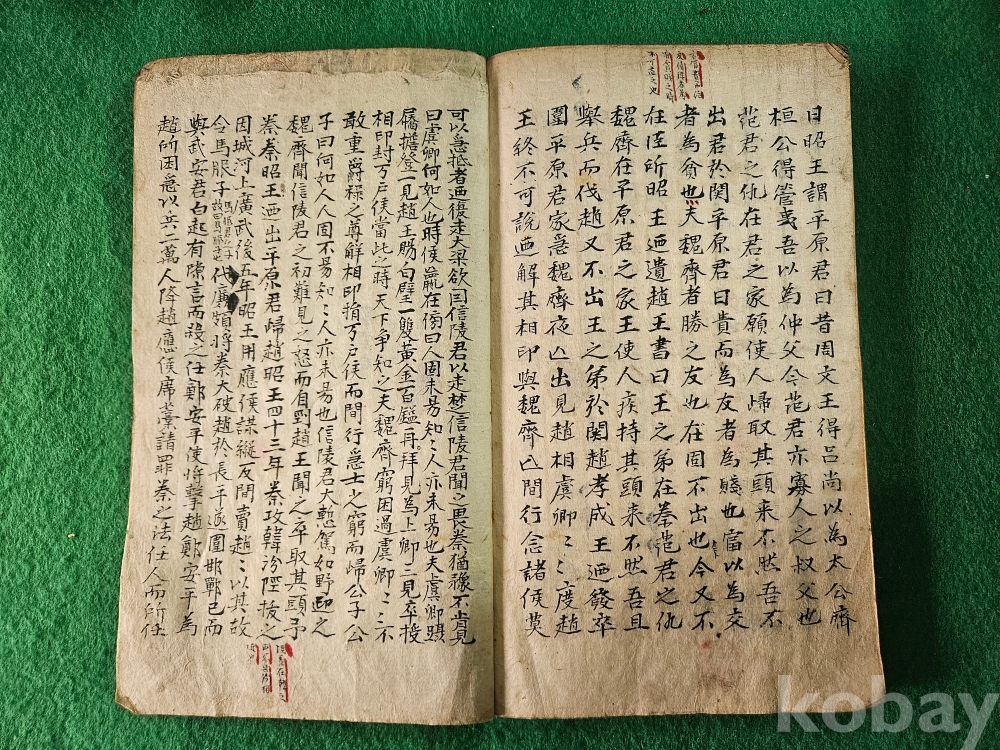 日昭王謂平原君曰昔周文王得呂尚以為太公齊
桓公得管夷吾以為仲父今范君亦寡人之叔父也
范君之仇在君之家願使人歸取其頭来不然吾不
出君於関平原君曰貴而為友者為賤也富以為交
者為貧也夫魏齊者勝之友也在固不出也今又不
在臣所昭王廼遺趙王書曰王之弟在秦范君之仇
魏齊在平原君之家王使人疾持其頭来不然吾且
擧兵而伐趙又不出王之弟於関趙孝成王廼發卒
圍平原君家急魏齊夜亡出見趙相虞卿〻〻度趙
王終不可說廼解其相印與魏齊亡間行念諸侯莫
可以急抵者廼復走大梁欲因信陵君以走楚信陵君聞之畏秦猶豫不肯見
曰虞卿何如人也時侯嬴在傍曰人固未易知〻人亦未易也夫虞卿躡
屩擔簦一見趙王賜白璧一雙黄金百鎰再拜見為上卿三見卒授
相印封万戶侯當此之時天下争知之夫魏齊窮困過虞卿〻〻不
敢重爵祿之尊解相印捐万戶侯而間行急士之窮而歸公子公
子曰何如人人固不易知〻人亦未易也信陵君大慙駕如野迎之
魏齊聞信陵君之初難見之怒而自剄趙王聞之卒取其頭予
秦秦昭王廼出平原君歸趙昭王四十三年秦攻韓汾陘拔之
因城河上廣武後五年昭王用應侯謀縱反間賣趙〻以其故
令馬服子馬服君之子故曰馬服子代廉頗將秦大破趙於長平遂圍邯鄲已而
與武安君白起有隙言而殺之任鄭安平使將擊趙鄭安平為
趙所困急以兵二萬人降趙應侯席藁請罪秦之法任人而所任
kobay